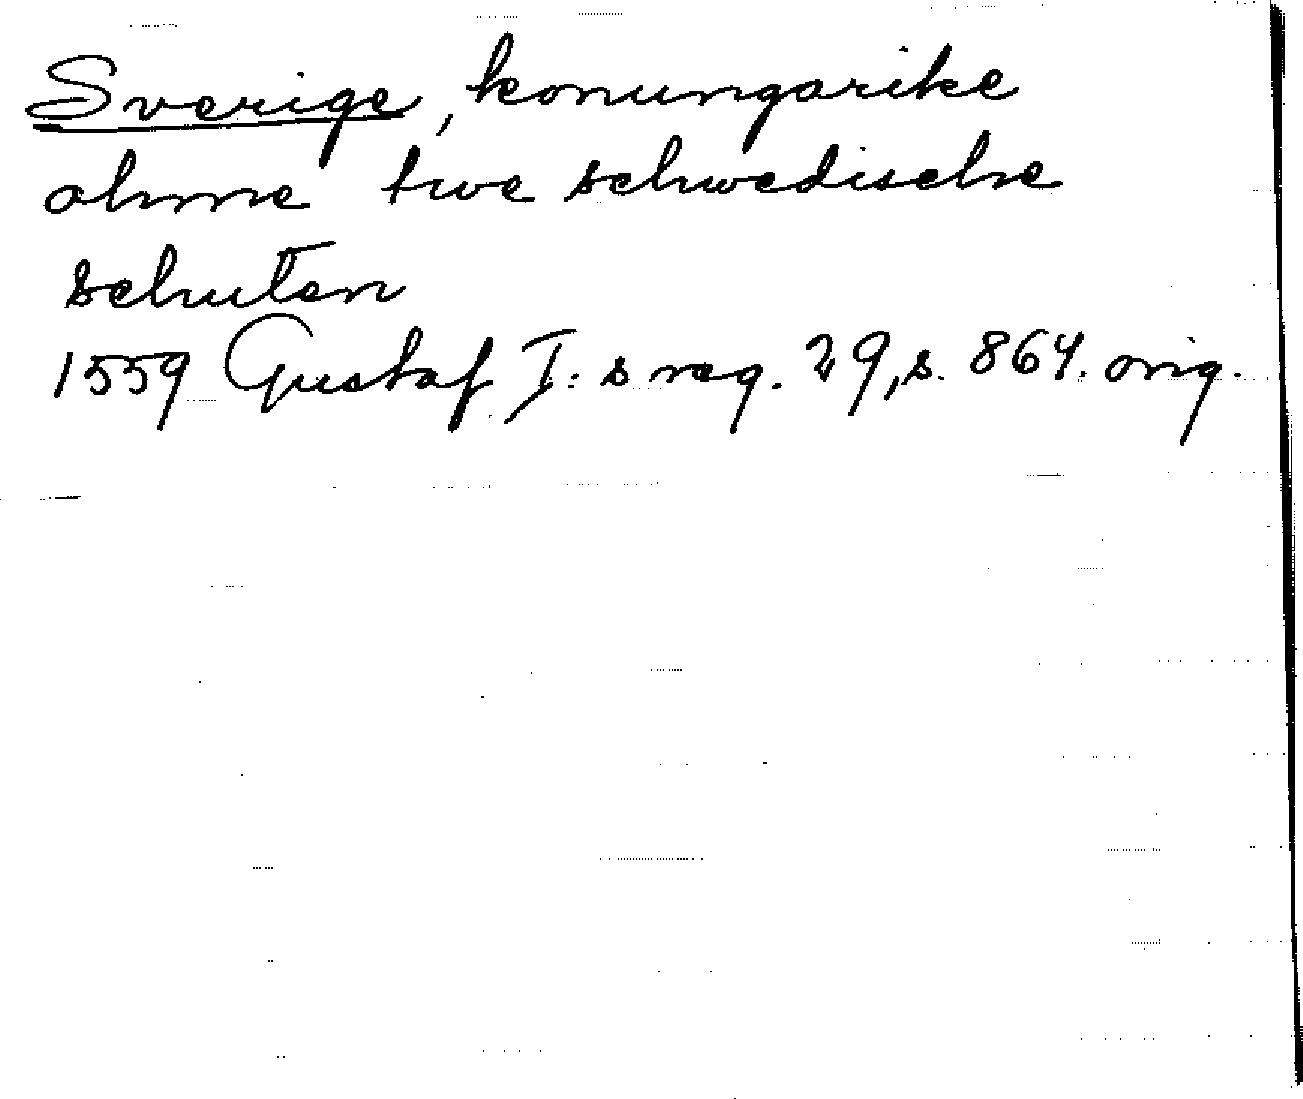 Sverige, konungarike
ohme twe schwedische
schuten
1559 Gustaf I:s reg. 29, s. 864. orig.